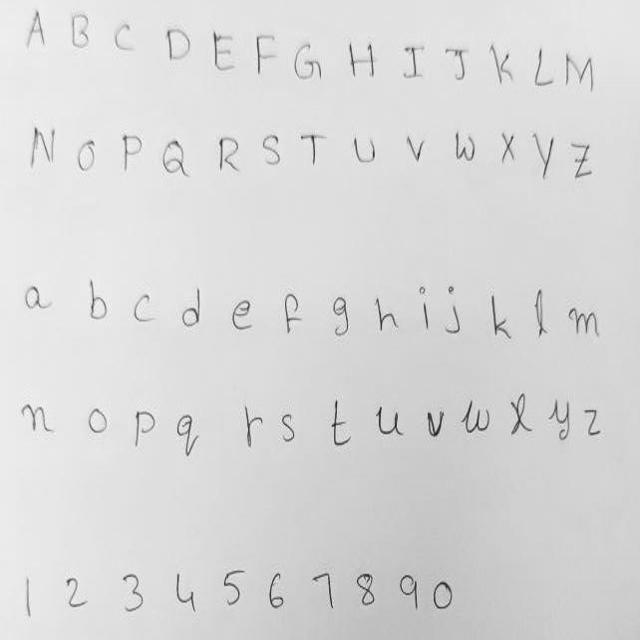 A B C D E F G H I J K L M
N O P Q R S T U V W X Y Z
a b c d e f g h i j k l m
n o p q r s t u v w x y z
1 2 3 4 5 6 7 8 9 0